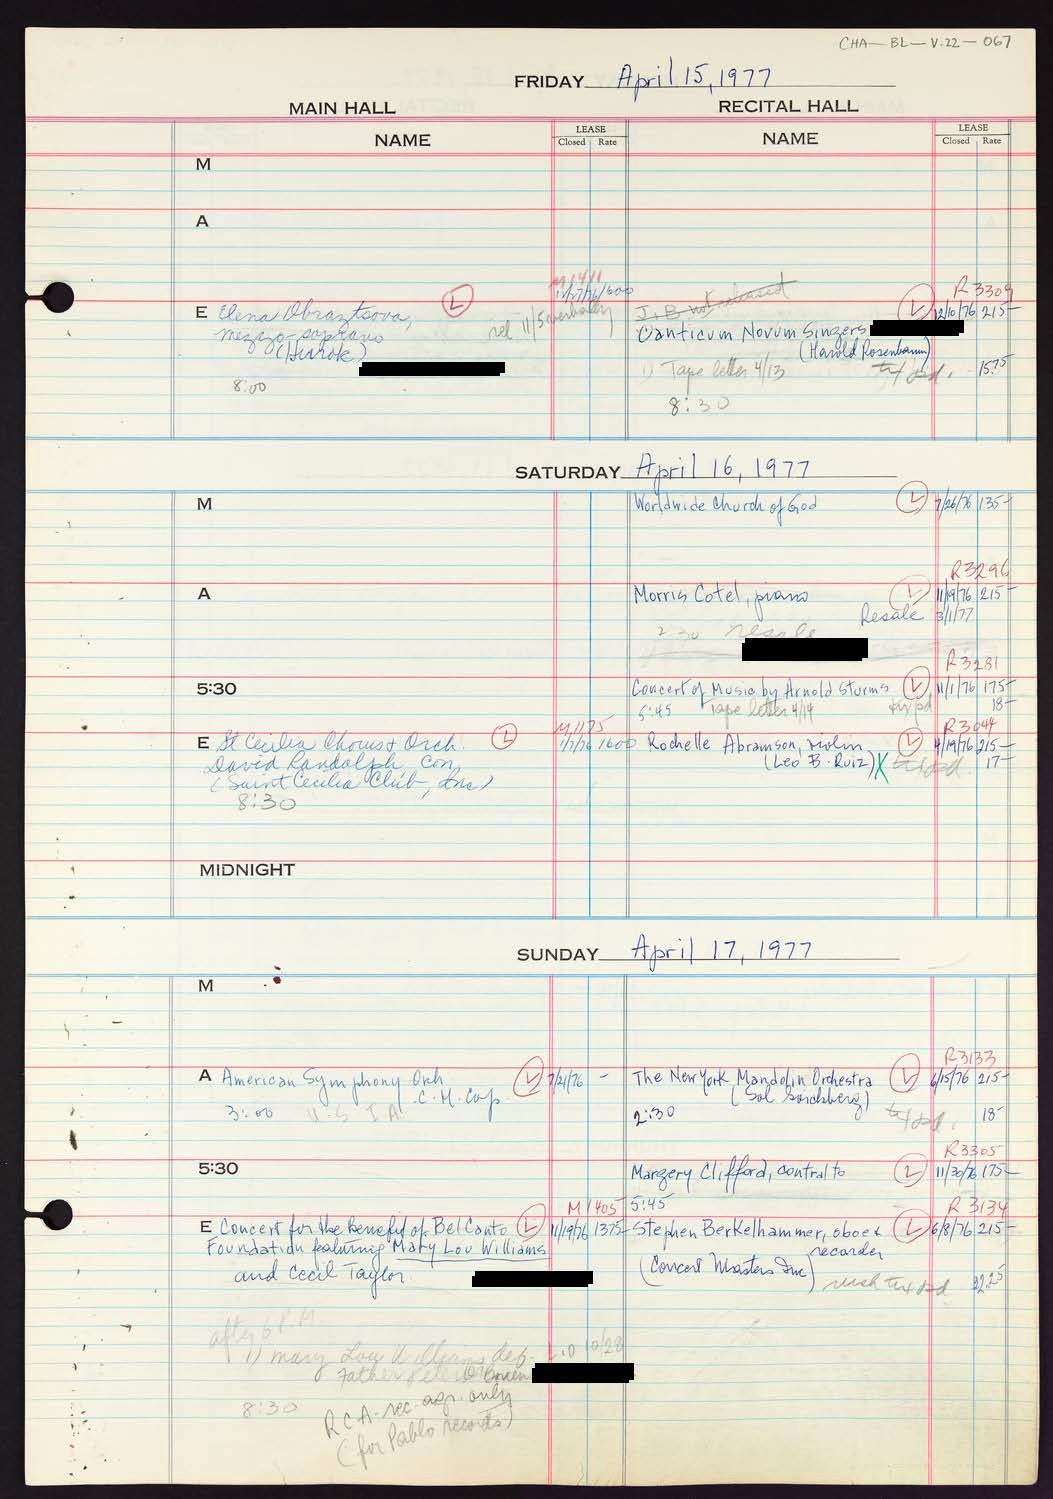 CHA—BL—V.22—067
FRIDAY April 15, 1977
MAIN HALL
RECITAL HALL
NAME
LEASE
Closed Rate
NAME
LEASE
Closed Rate
M
A
M1411
R3309
J.B not released
E Elena Obraztsova,
rel 11/5 verbally
L
L 12/10/76 215-
mezzo-soprano
Canticum Novum Singers
(Hurok)
(Harold Rosenbaum)
8:00
1) Tape letter 4/13
tix pd. 15.75
8:30
SATURDAY April 16, 1977
M
Worldwide Church of God L 7/26/76 135-
R3296
A
Morris Cotel, piano L 11/19/76 215-
Resale 3/1/77
2:30 resale
R3281
5:30
Concert of Music by Arnold Sturms L 11/1/76 175-
5:45 Tape letter 4/14 tix pd 18-
M1175
R3044
E St Cecilia Chorus & Orch. L 1/7/76 1600
Rochelle Abramson, violin L 4/19/76 215-
David Randolph, Con.
(Leo B. Ruiz) X tix pd. 17-
(Saint Cecilia Club, Inc)
8:30
MIDNIGHT
SUNDAY April 17, 1977
M
R3133
A American Symphony Orch L 7/21/76 -
The New York Mandolin Orchestra L 6/15/76 215-
C.M. Corp.
3:00 U S I A
2:30 tix pd. 18-
R3305
5:30
Margery Clifford, contralto L 11/30/76 175-
M1405
5:45
R3134
E Concert for the benefit of Bel Canto L 11/19/76 1375-
Stephen Berkelhammer, oboe & L 6/8/76 215-
Foundation featuring Mary Lou Williams
recorder
and Cecil Taylor
(Concert Masters Inc)
tix pd 22.25
after 6 P.M
1) Mary Lou Williams dep. 10/28
Father Peter O'Brien
8:30
RCA-rec. only
(for Pablo records)